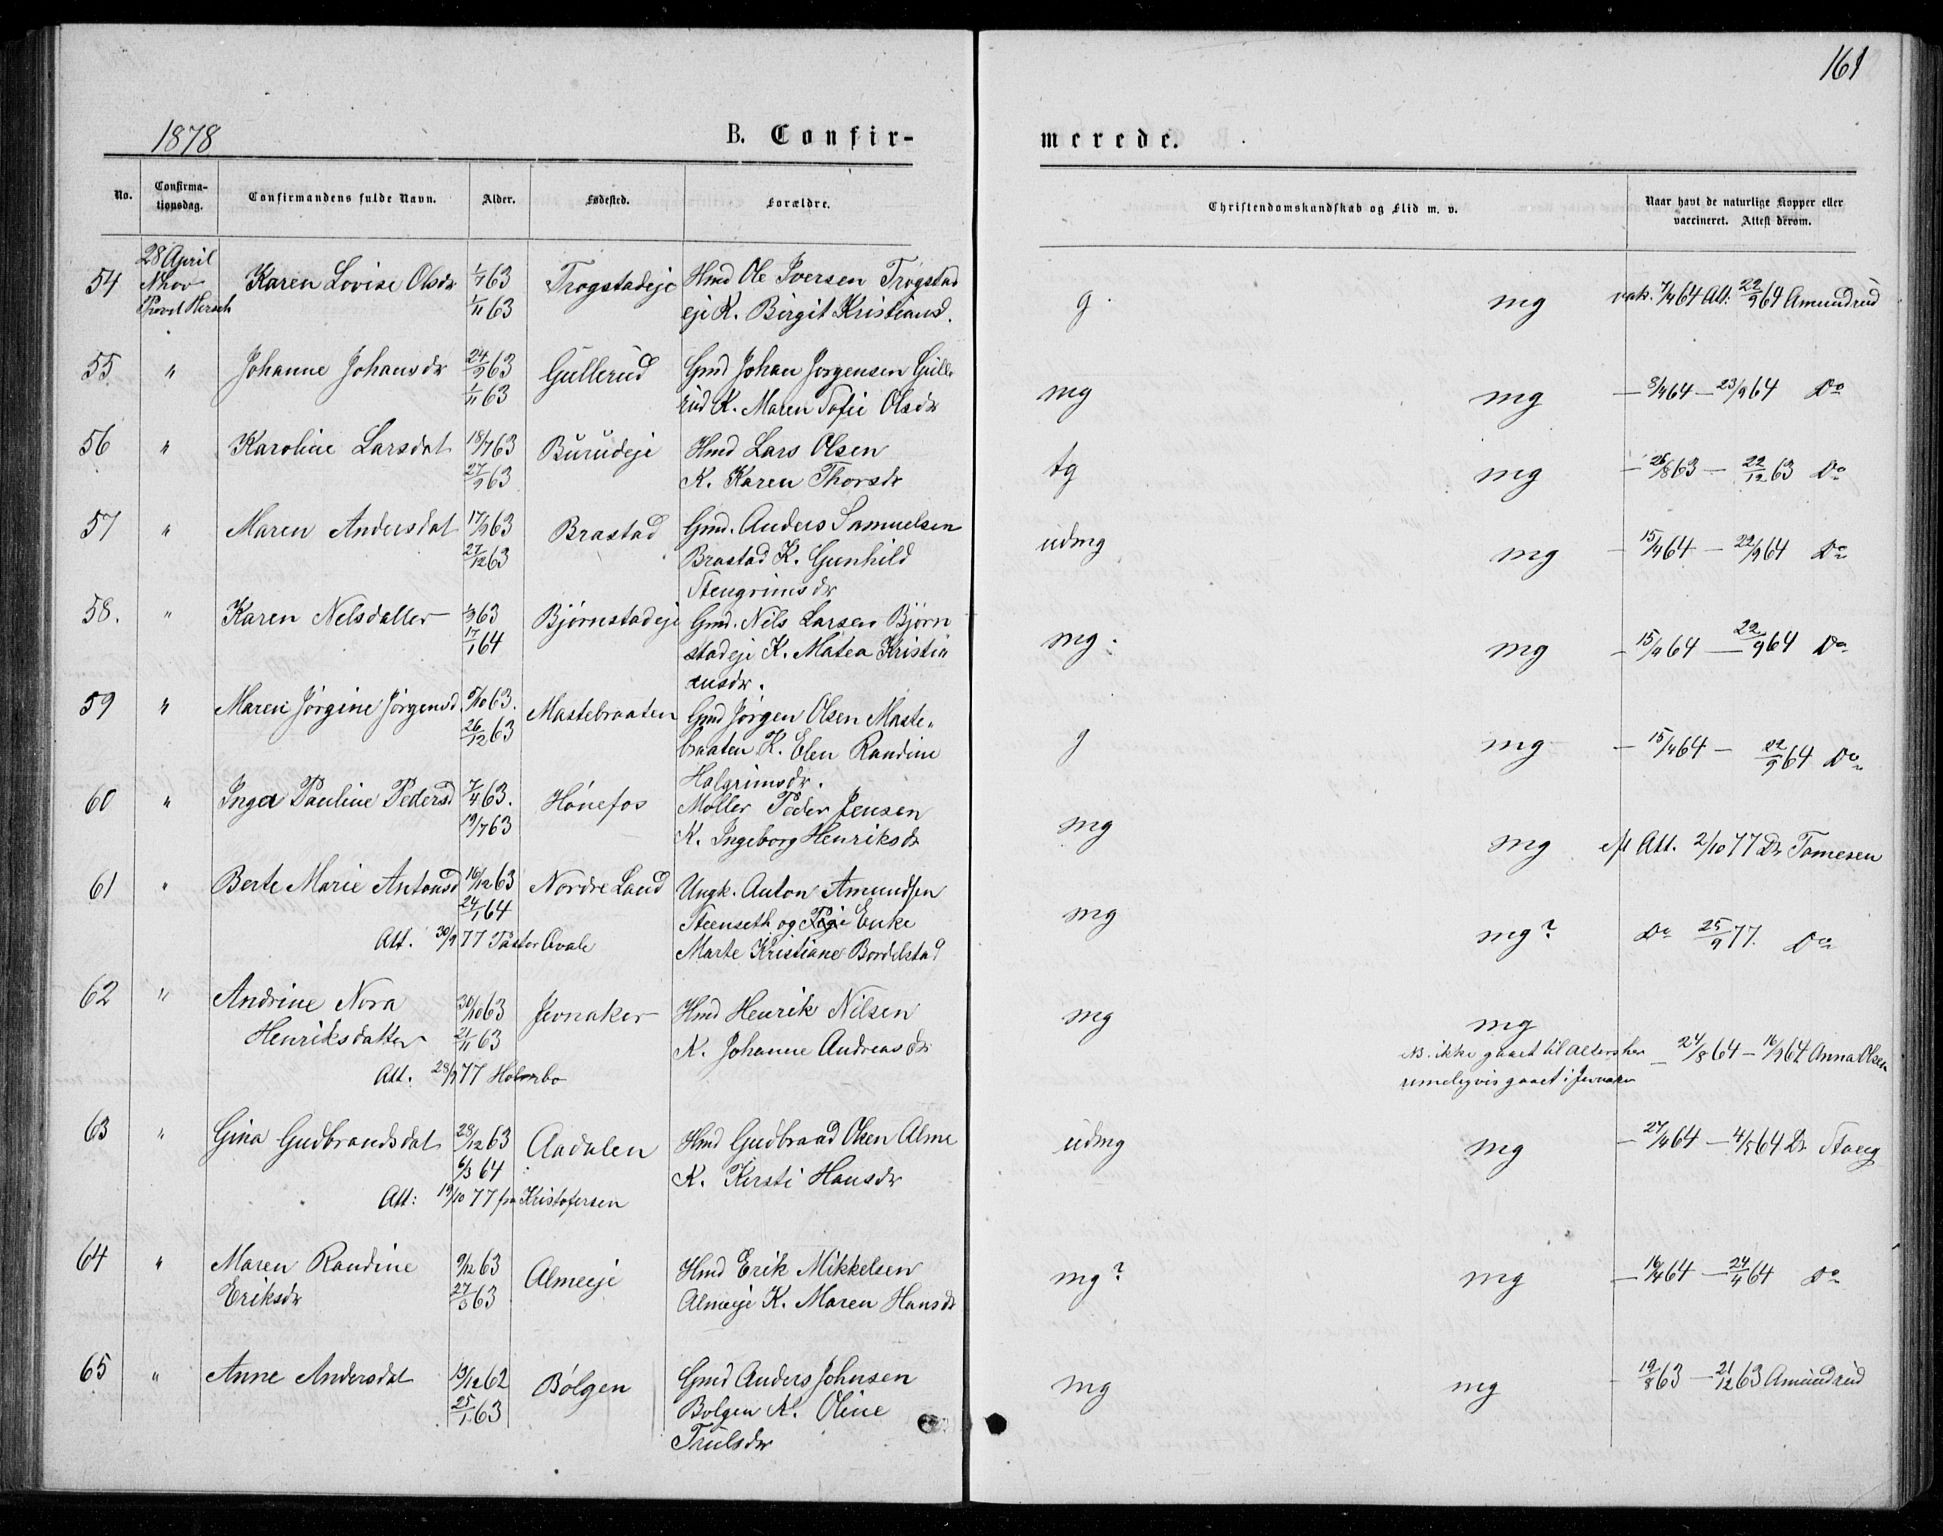 161
1878 B. Confir- merede.
No. Confirma- tionsdag. Confirmandens fulde Navn. Alder. Fødested. Forældre. Christendomskundskab og Flid m. v. Naar havt de naturlige Kopper eller vaccineret. Attest derom.
28 April
54 Karen Lovise Olsdr 63 Trøgstadeje Hmd Ole Iversen Trøgstad
1/11 63 eje K. Birgit Kristiansd.
g. mg vak. 7/4 64 Att. 22/9 64 Amundrud
55 " Johanne Johansdr 24/9 63 Gullerud Gmd Johan Jørgensen Gulle
1/11 63 rud K. Maren Sofie Olsdr
mg mg — 8/4 64 — 23/9 64 Do
56 " Karoline Larsdat 18/7 63 Burudeje Hmd Lars Olsen
27/9 63 K. Karen Thorsdr
tg mg — 26/8 63 — 22/12 63 Do
57 " Maren Andersdat 17/9 63 Brastad Gmd. Anders Samuelsen
27/12 63 Brastad K. Gunhild
Stengrimsdr
udmg mg — 15/4 64 — 22/9 64 Do
58. " Karen Nelsdatter 63 Bjørnstadeje Gmd. Nils Larsen Bjørn
17/1 64 stadeje K. Matea Kristi
ansdr.
mg. mg — 15/4 64 — 22/9 64 Do
59 " Maren Jørgine Jørgensd 63. Mastebraaten Gmd Jørgen Olsen Maste-
26/12 63 braaten K. Elen Randine
Halgrimsdr.
g mg — 15/4 64 — 22/9 64 Do
60 " Inga Pauline Pedersd 7/4 63. Hønefos Møller Peder Jensen
19/7 63 K. Ingeborg Henriksdr
mg mg eft Att. 2/10 77 Dr Tomesen
61 " Berte Marie Antonsd 16/12 63 Nordre Land Ungk. Anton Amundsen
24/1 64 Steenseth og Enke
Att. 30/9 77 Pastor Marte Kristiane Bordelstad
mg mg? Do 25/9 77. Do
62 " Andrine Nora 30/10 63 Jevnaker Hmd Henrik Nilsen
Henriksdatter 21/11 63 K. Johanne Andreasdr
Att. 28/9 77 Holmbo
mg mg
NB. ikke gaaet til Alters her — 24/8 64 — 16/9 64 Anna Olsen
rimeligvis gaaet i Jevnaker
63 " Gina Gudbrandsdat 28/12 63 Aadalen Hmd Gudbrand Olsen Alme
6/3 64 K. Kirsti Hansdr
Att: 19/10 77 fra Kristofersen
udmg mg — 27/4 64 — 4/5 64 Dr
64 " Maren Randine 9/12 63 Almeeje Hmd Erik Mikkelsen
Eriksdr 27/ 63 Almeeje K. Maren Hansdr
mg? mg — 16/4 64 — 24/4 64 Do
65 " Anne Andersdat 13/12 62 Bølgen Gmd Anders Johnsen
25/1 63 Bølgen K. Oline
Trulsdr
mg mg — 19/8 63 — 21/12 63 Amundrud